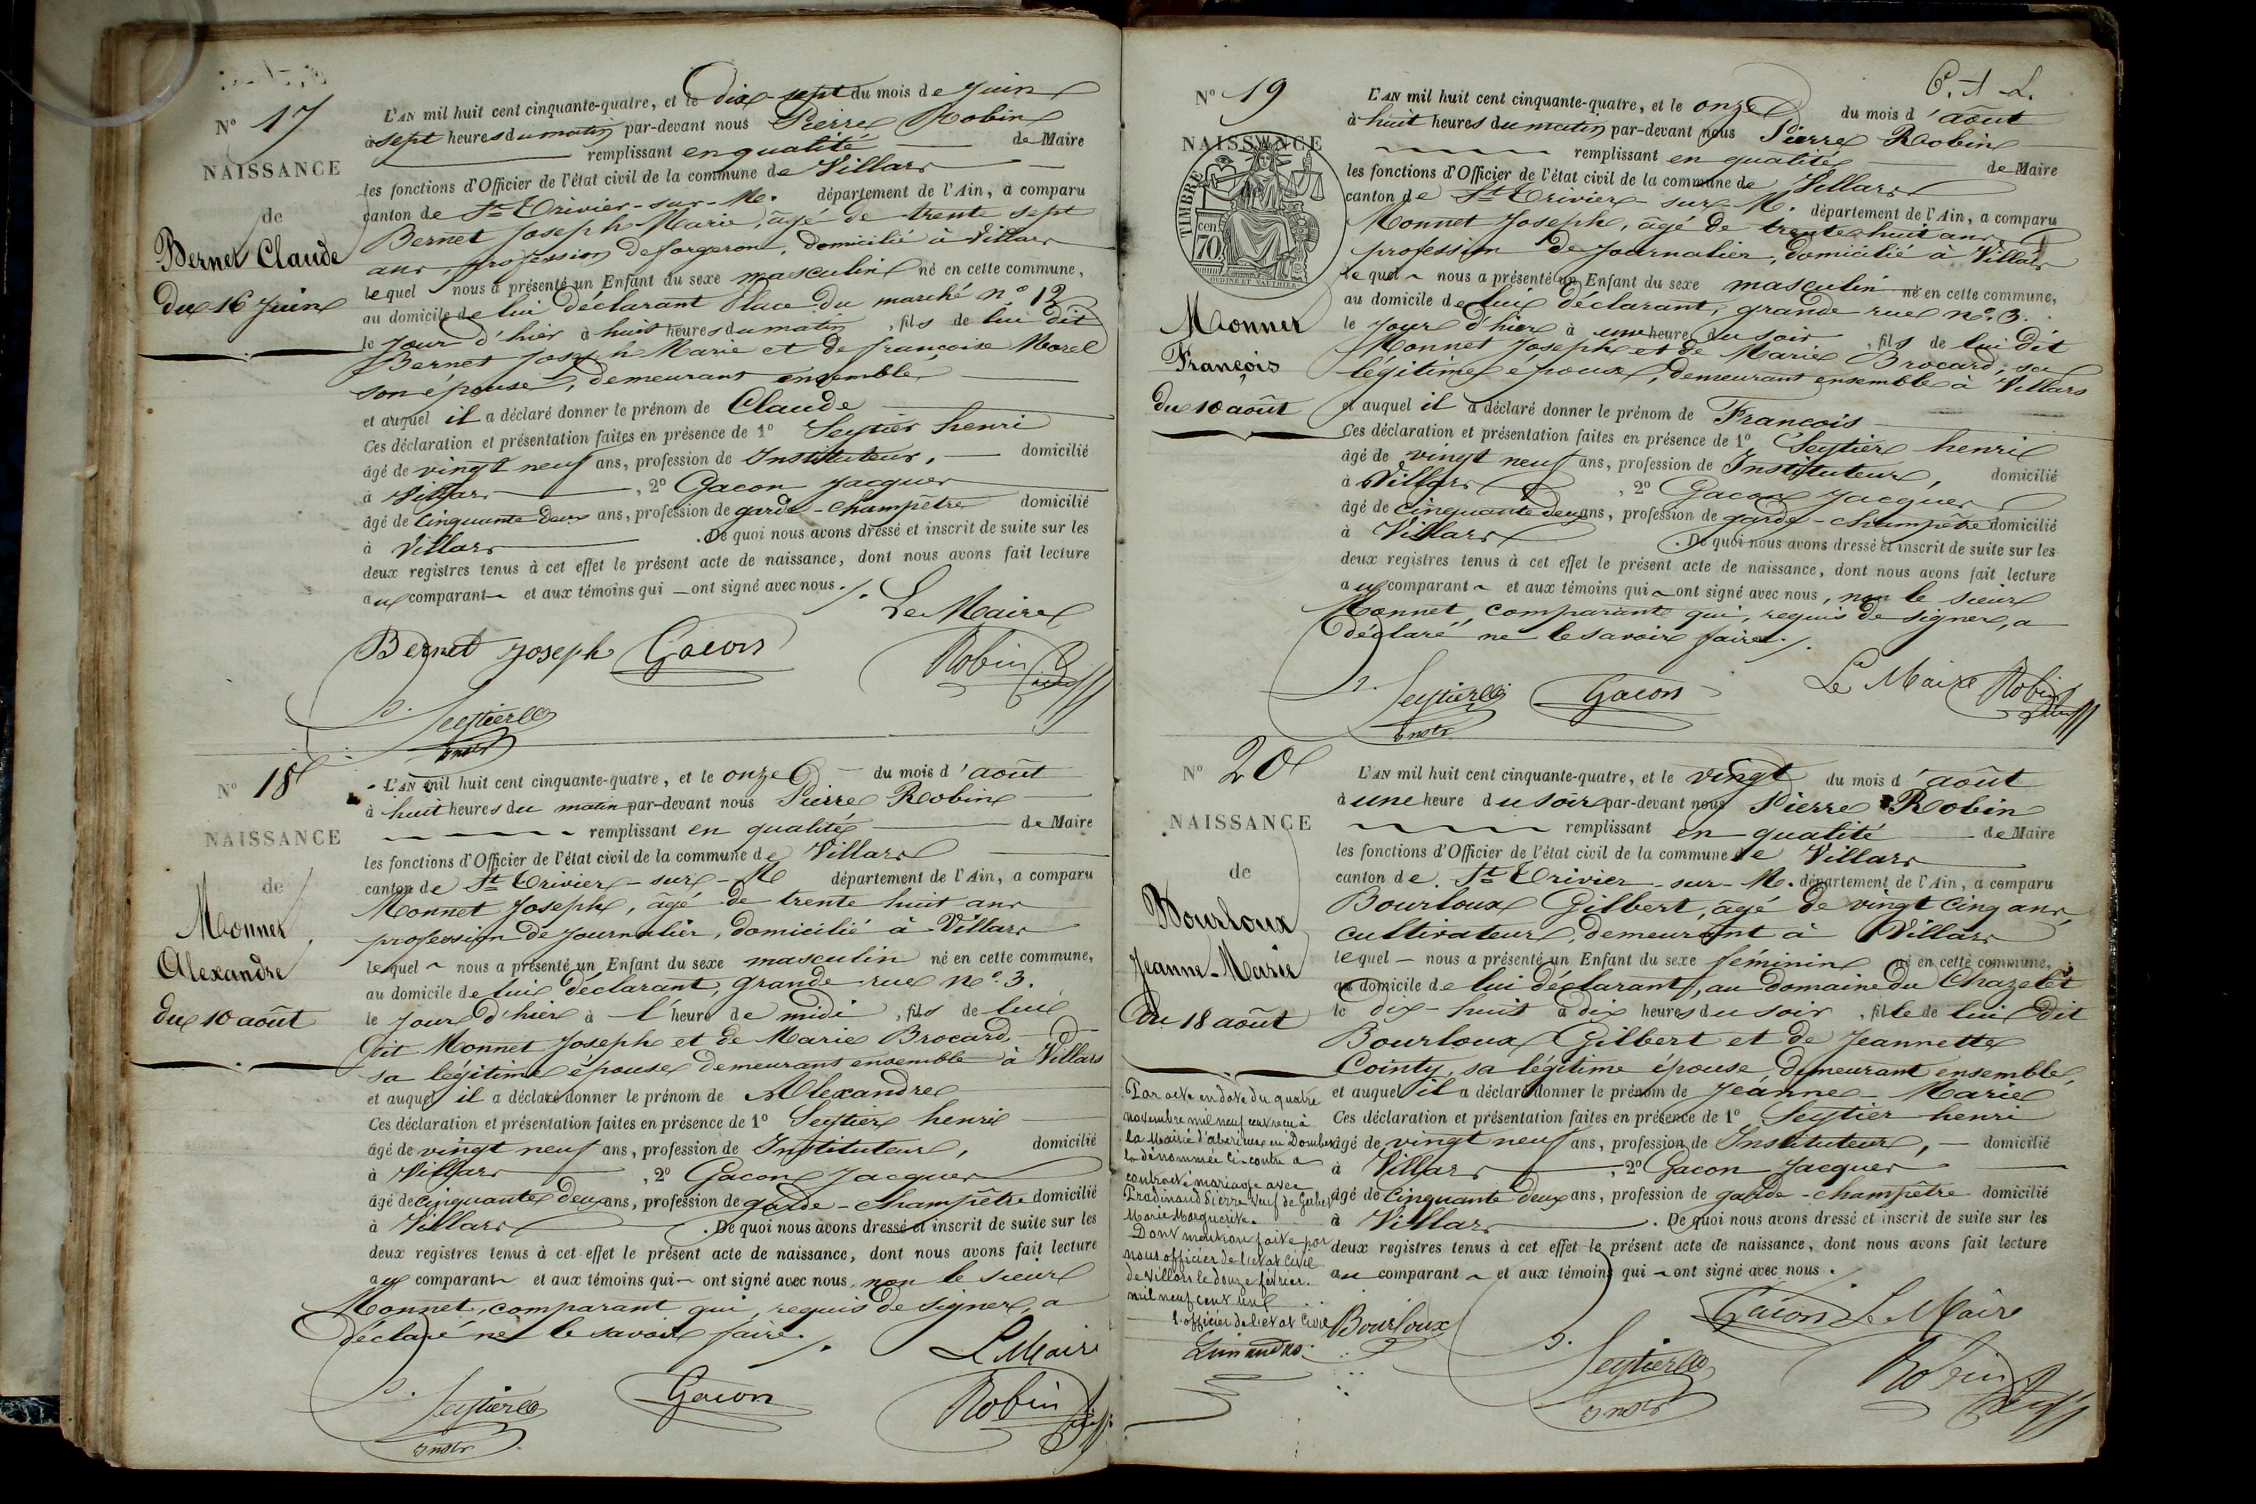 N° 17
NAISSANCE
de
Bernet Claude
du 16 Juin
L'AN mil huit cent cinquante-quatre, et le dix sept du mois de Juin
à sept heures du matin par-devant nous Pierre Robin
remplissant en qualité de Maire
les fonctions d'Officier de l'état civil de la commune de Villars
canton de St Trivier-sur-M. département de l'Ain, a comparu
Bernet Joseph Marie, âgé de trente sept
ans, profession de forgeron, domicilié à Villars
lequel nous a présenté un Enfant du sexe masculin né en cette commune,
au domicile de lui déclarant Place du marché n° 12
le jour d'hier à huit heures du matin, fils de lui dit
Bernet Joseph Marie et de françoise Morel
son épouse, demeurant ensemble
et auquel il a déclaré donner le prénom de Claude
Ces déclaration et présentation faites en présence de 1° Seytier henri
âgé de vingt neuf ans, profession de Instituteur, domicilié
à Villars, 2° Gacon Jacques
âgé de cinquante deux ans, profession de garde-champêtre domicilié
à Villars. De quoi nous avons dressé et inscrit de suite sur les
deux registres tenus à cet effet le présent acte de naissance, dont nous avons fait lecture
au comparant et aux témoins qui ont signé avec nous./.
Le Maire
Bernet Joseph Gacon Robin
Seytier
instr
N° 18
NAISSANCE
de
Monnet
Alexandre
du 10 août
L'AN mil huit cent cinquante-quatre, et le onze du mois d'août
à huit heures du matin par-devant nous Pierre Robin
remplissant en qualité de Maire
les fonctions d'Officier de l'état civil de la commune de Villars
canton de St Trivier-sur-M département de l'Ain, a comparu
Monnet Joseph, agé de trente huit ans
profession de journalier, domicilié à Villars
lequel nous a présenté un Enfant du sexe masculin né en cette commune,
au domicile de lui déclarant, grande rue N° 3.
le jour d'hier à l'heure de midi, fils de lui
dit Monnet Joseph et de Marie Brocard,
sa légitime épouse demeurant ensemble à Villars
et auquel il a déclaré donner le prénom de Alexandre
Ces déclaration et présentation faites en présence de 1° Seytier henri
âgé de vingt neuf ans, profession de Instituteur, domicilié
à Villars, 2° Gacon Jacques
âgé de cinquante deux ans, profession de garde-champêtre domicilié
à Villars. De quoi nous avons dressé et inscrit de suite sur les
deux registres tenus à cet effet le présent acte de naissance, dont nous avons fait lecture
au comparant et aux témoins qui ont signé avec nous, non le sieur
Monnet, comparant qui, requis de signer, a
déclaré ne le savoir faire./.
Le Maire
Seytier Gacon Robin
instr
C. A. L.
N° 19
NAISSANCE
TIMBRE
70 cen
OUDINE ET VAUTHIER
Monnet
François
du 10 août
L'AN mil huit cent cinquante-quatre, et le onze du mois d'août
à huit heures du matin par-devant nous Pierre Robin
remplissant en qualité de Maire
les fonctions d'Officier de l'état civil de la commune de Villars
canton de St Trivier sur M. département de l'Ain, a comparu
Monnet Joseph, âgé de trente huit ans
profession de journalier, domicilié à Villars
lequel nous a présenté un Enfant du sexe masculin né en cette commune,
au domicile de lui déclarant, grande rue n°. 3.
le jour d'hier à une heure du soir, fils de lui dit
Monnet Joseph et de Marie Brocard, sa
légitime épouse, demeurant ensemble à Villars
et auquel il a déclaré donner le prénom de François
Ces déclaration et présentation faites en présence de 1° Seytier henri
âgé de vingt neuf ans, profession de Instituteur, domicilié
à Villars, 2° Gacon Jacques
âgé de cinquante deux ans, profession de garde-champêtre domicilié
à Villars. De quoi nous avons dressé et inscrit de suite sur les
deux registres tenus à cet effet le présent acte de naissance, dont nous avons fait lecture
au comparant et aux témoins qui ont signé avec nous, non le sieur
Monnet, comparant qui, requis de signer, a
déclaré ne le savoir faire./.
Le Maire Robin
Seytier Gacon
instr
N° 20
NAISSANCE
de
Bourloux
Jeanne-Marie
du 18 août
L'AN mil huit cent cinquante-quatre, et le vingt du mois d'août
à une heure du soir par-devant nous Pierre Robin
remplissant en qualité de Maire
les fonctions d'Officier de l'état civil de la commune de Villars
canton de St Trivier-sur-M. département de l'Ain, a comparu
Bourloux Gilbert, âgé de vingt cinq ans,
cultivateur, demeurant à Villars
lequel nous a présenté un Enfant du sexe féminin né en cette commune,
au domicile de lui déclarant, au domaine du Chazelet
le dix-huit à dix heures du soir, fille de lui dit
Bourloux Gilbert et de Jeannette
Cointy, sa légitime épouse, demeurant ensemble,
et auquel il a déclaré donner le prénom de Jeanne-Marie
Ces déclaration et présentation faites en présence de 1° Seytier henri
âgé de vingt neuf ans, profession de Instituteur, domicilié
à Villars, 2° Gacon Jacques
âgé de cinquante deux ans, profession de garde-champêtre domicilié
à Villars. De quoi nous avons dressé et inscrit de suite sur les
deux registres tenus à cet effet le présent acte de naissance, dont nous avons fait lecture
au comparant et aux témoins qui ont signé avec nous.
Par acte en date du quatre
novembre mil neuf cent reçu à
la Mairie d'abérieux en Dombes
la dénommée ci-contre a
contracté mariage avec
Pradinaud Pierre Veuf de
Marie Marguerite.
Dont mention faite par
nous officier de l'état civil
de Villars le douze février
mil neuf cent un
l'officier de l'état Civil
Bourloux Gacon Le Maire
Seytier Robin
instr